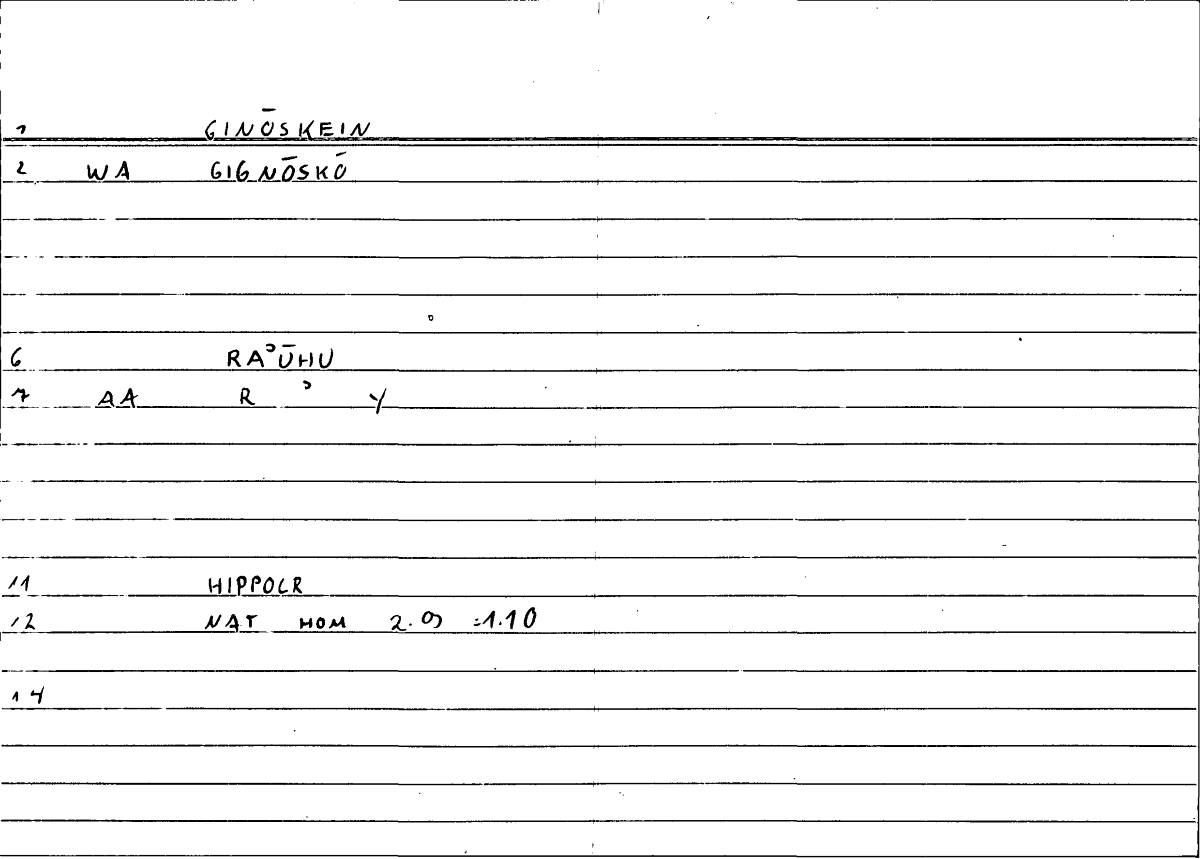 1 GINŌSKEIN
2 WA GIGNŌSKŌ
6 RAʾŪHU
7 AA R ʾ Y
11 HIPPOCR
12 NAT HOM 2.9 =1.10
14